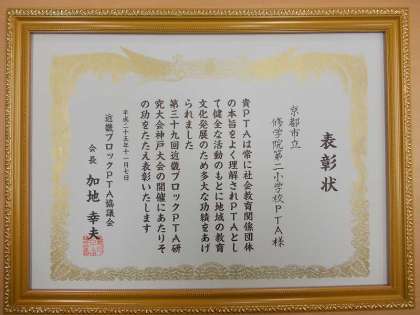 表彰状
京都市立
修学院第二小学校PTA様
貴PTAは常に社会教育関係団体
の本旨をよく理解されPTAとし
て健全な活動のもとに地域の教育
文化発展のため多大な功績をあげ
られました
第三十九回近畿ブロックPTA研
究大会神戸大会の開催にあたりそ
の功をたたえ表彰いたします
平成二十五年十一月七日
近畿ブロックPTA協議会
会長 加地幸夫